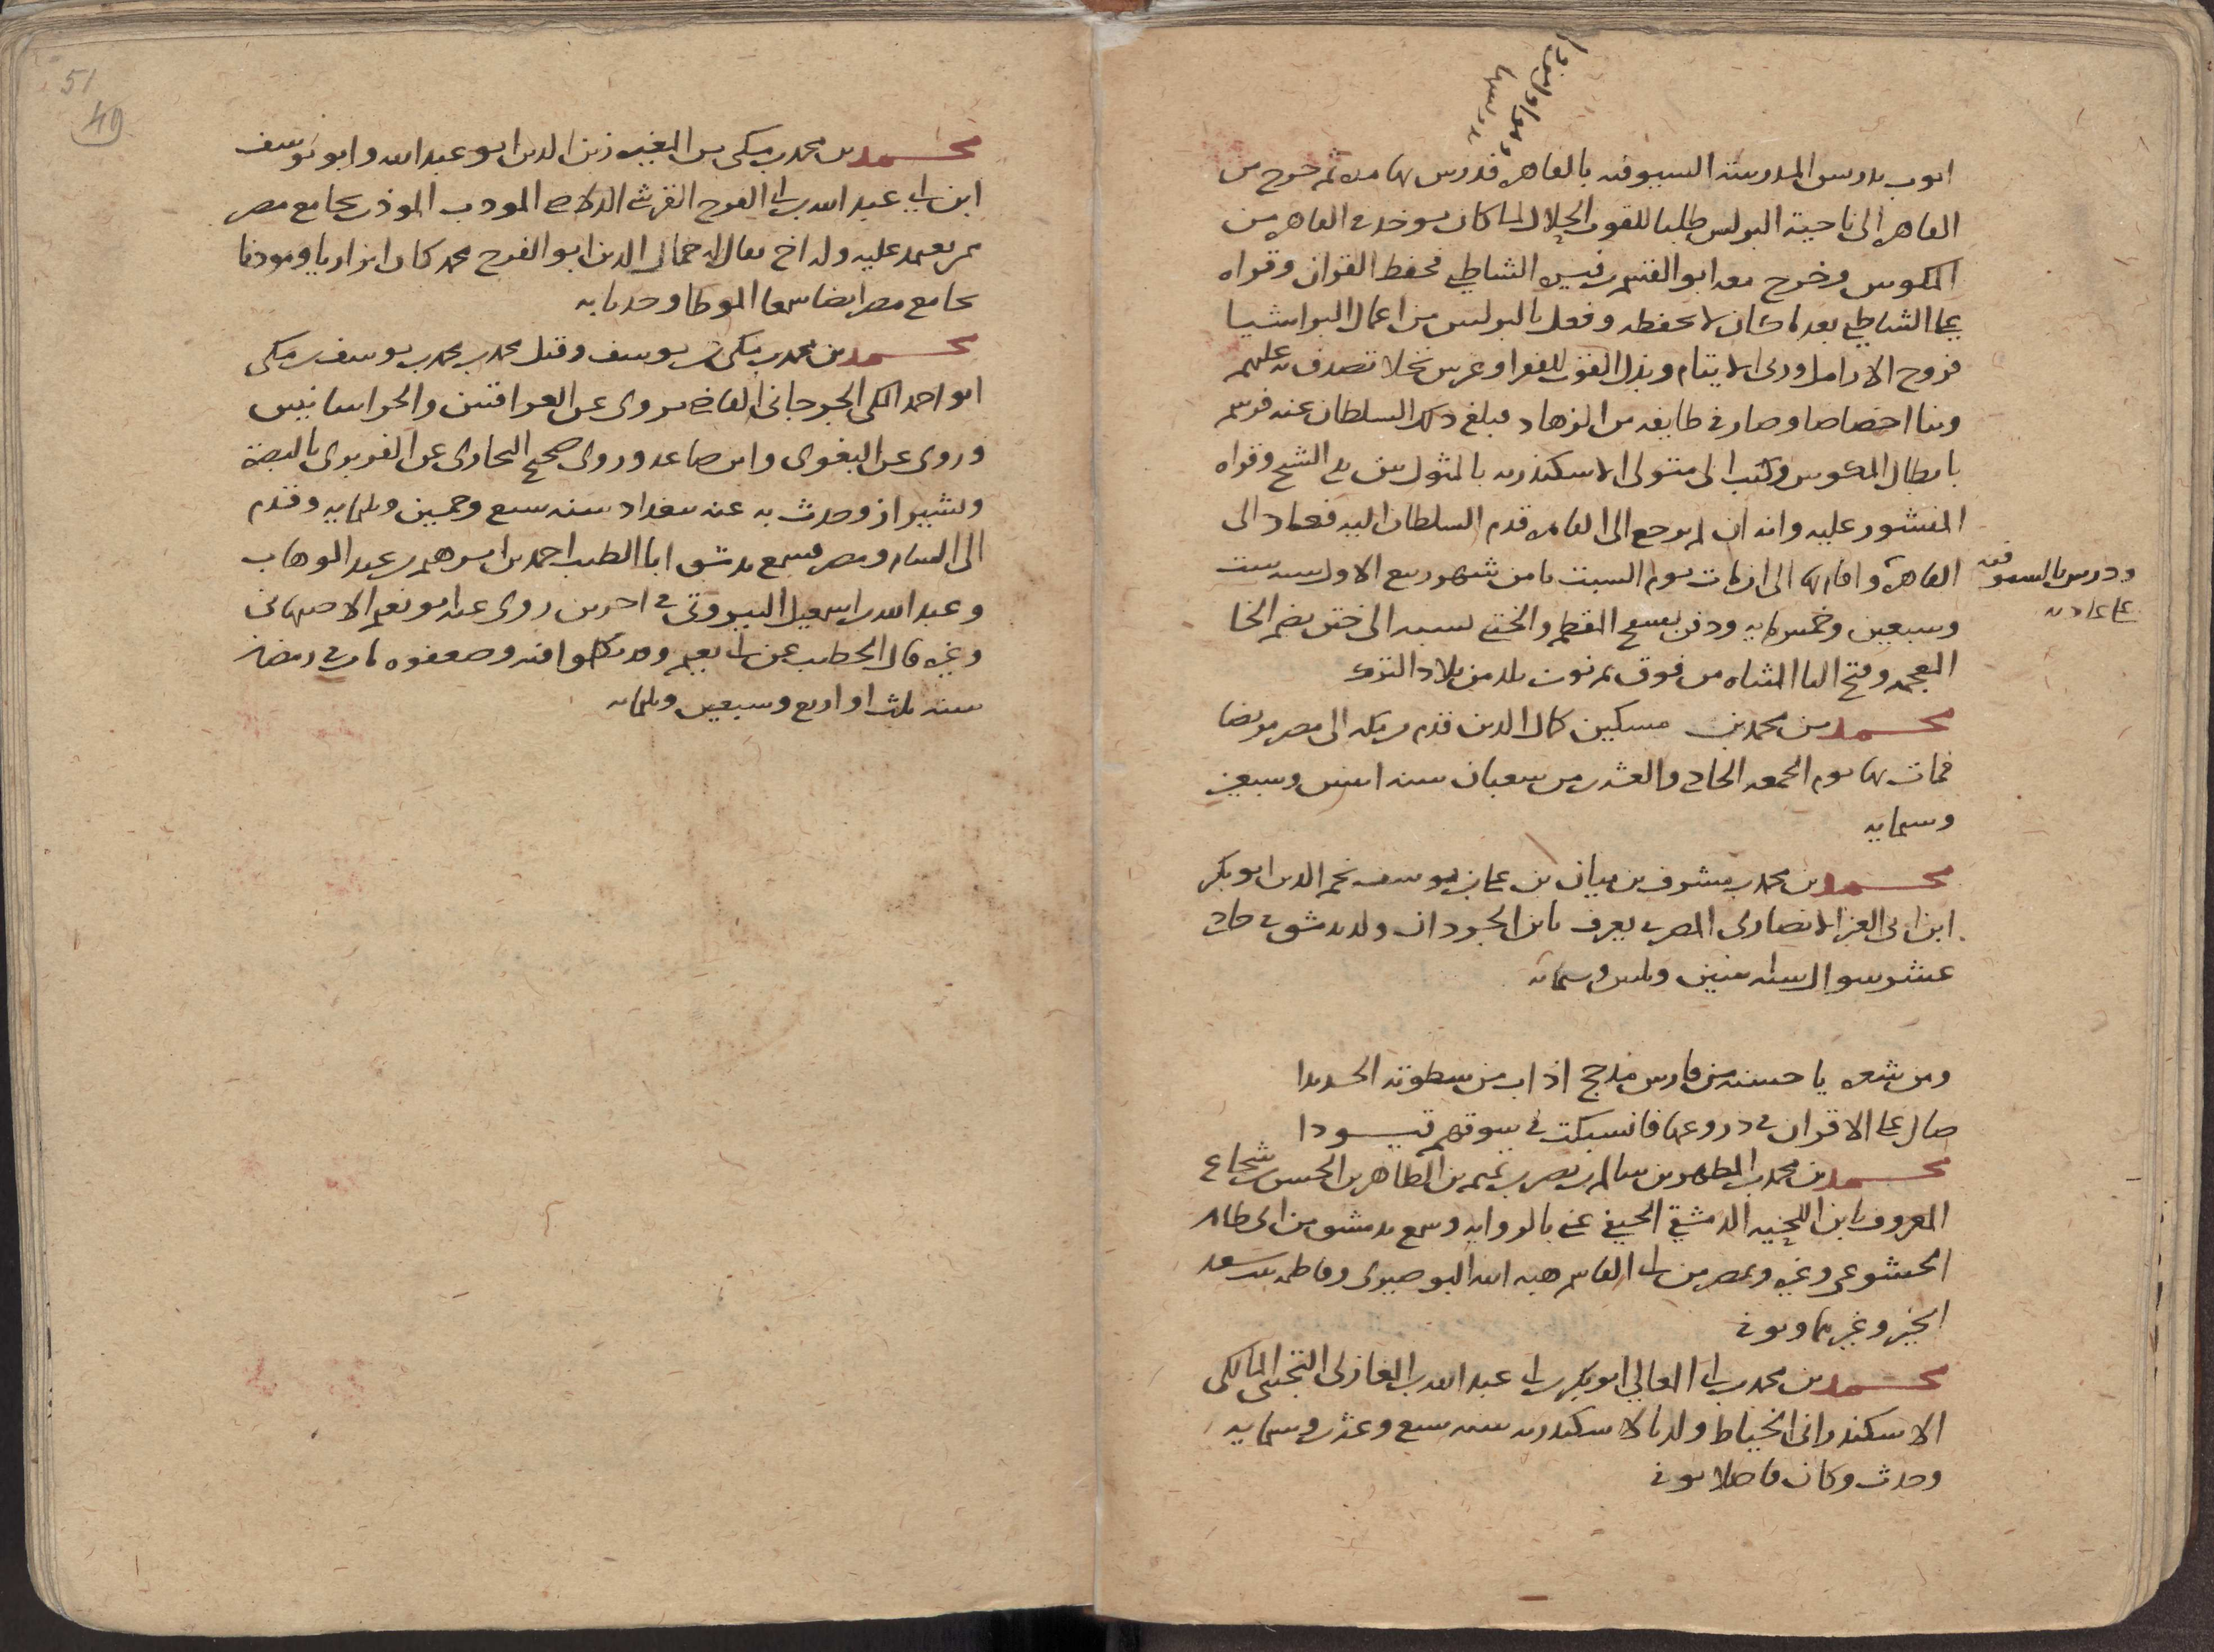 ايوب بدرس المدرسة السيوفيه بالقاهره فدرس بها مده ثم خرج من
القاهره الى ناحية البرلس طلبا للقوت الحلال لما كان يوخد في القاهره من
المكوس وخرج معه ابو القسم بن فيره الشاطبي فحفظ القران وقراه
على الشاطبي بعد ما كان لا يحفظه وفعل بالبرلس من اعمال البر اشيا
فزوج الارامل وربى الايتام وبذل القوت للفقرا وغرس نخلا تصدق به عليهم
وبنا اخصاصا وصار في طايفه من الزهاد فبلغ ذلك السلطان عنه فرسم
بابطال المكوس وكتب الى متولى الاسكندريه بالمثول بين يدي الشيخ وقراه
المنشور عليه وانه ان لم يرجع الى القاهره قدم السلطان اليه فعاد الى
القاهرة واقام بها الى ان مات يوم السبت ثامن شهر ربيع الاول سنه ست
ودرس بالسيوفيه
على عادته
وسبعين وخمسمايه ودفن بسفح المقطم والختني نسبه الى ختن بضم الخا
المعجمه وفتح التا المثناه من فوق ثم نون بلد من بلاد الترك
محمد بن محمد بن مسكين كمال الدين قدم من مكه الى مصر مريضا
فمات بها يوم الجمعه الحادي والعشرين من شعبان سنه اثنين وسبعين
وستمايه
محمد بن محمد بن مشرف بن بيان بن علي بن يوسف نجم الدين ابو بكر
ابن ابى العز الانصارى المصري يعرف بابن الجردان ولد بدمشق في حادي
عشر شوال سنه ستين وستمايه
ومن شعره يا حسنه من فارس مدجج اذاب من سطوته الحديدا
صال على الاقران في دروعها فانسبكت في سوقهم قيودا
محمد بن محمد بن المطهر بن سالم بن نصر بن تميم بن الطاهر بن الحسن بن شجاع
المعروف بابن اللحيه الدمشقي الحنفي عني بالروايه وسمع بدمشق من ابى طاهر
الخشوعي وغيره وبمصر من ابي القاسم هبه الله البوصيرى وفاطمه بنت سعد
الخير وغيرهما وتوفي
محمد بن محمد بن ابي المعالي ابو بكر بن ابي عبد الله بن الغازلى التجيبي المالكى
الاسكندرانى الخياط ولد بالاسكندريه سنه سبع وعشرين وستمايه
وحدث وكان فاضلا توفي
51
49
محمد بن محمد بن مكى بن المغيب زين الدين ابو عبد الله وابو يوسف
ابن ابي عبد الله بن ابي الفرج القرشي الدلاصي المودب الموذن بجامع مصر
ثم بعمد عليه وله اخ يقال له جمال الدين ابو الفرج محمد كان ابزاريا وموذنا
بجامع مصر ايضا سمعا الموطا وحدثا به
محمد بن محمد بن مكى بن يوسف وقيل محمد بن محمد بن يوسف بن مكى
ابو احمد المكى الجرجانى القاضي يروى عن العراقيين والخراسانيين
وروى عن البغوى وابن صاعد وروى صحيح البخارى عن الفربرى بالبصرة
وشيراز وحدث به عنه ببغداد سنه سبع وخمسين وثلثمايه وقدم
الى الشام ومصر فسمع بدمشق ابا الطيب احمد بن ابرهيم بن عبد الوهاب
وعبد الله بن اسمعيل البيروتي في اخرين روى عنه ابو نعيم الاصبهانى
وغيره قال الخطيب عن ابي نعيم وقد تكلموا فيه وضعفوه مات في رمضان
سنه ثلث او اربع وسبعين وثلثمايه